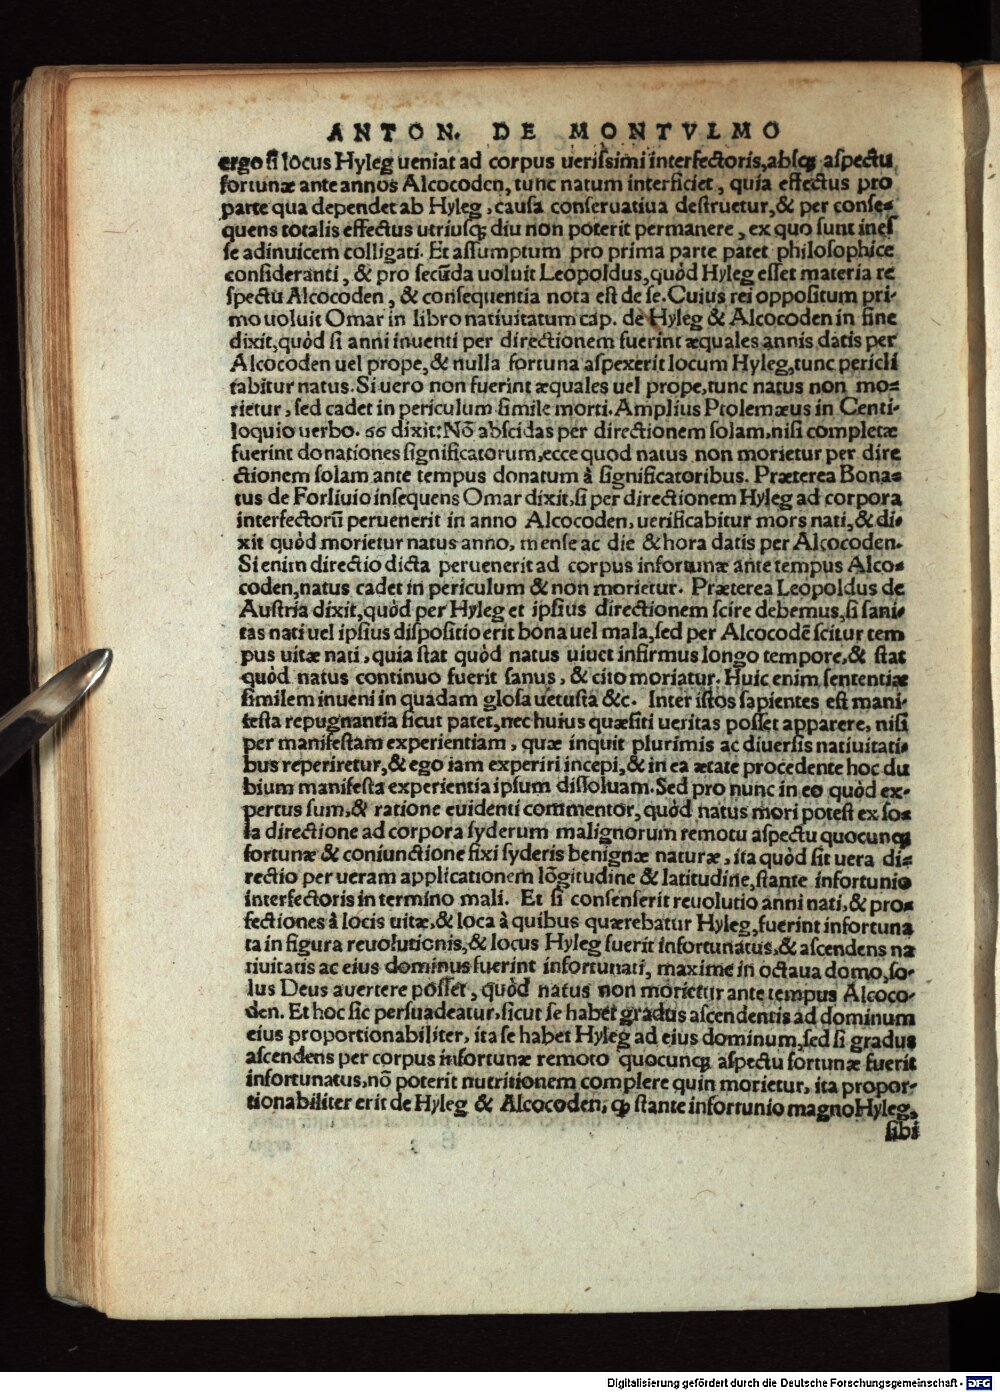 ANTON. DE MONTVLMO
ergo ſi locus Hyleg ueniat ad corpus ueriſsimi interfectoris, absq; aſpectu
fortunæ ante annos Alcocoden, tunc natum interficiet, quia effectus pro
parte qua dependet ab Hyleg, cauſa conſeruatiua deſtruetur, & per conſe-
quens totalis effectus utriusq; diu non poterit permanere, ex quo ſunt ineſ
ſe adinuicem colligati. Et aſſumptum pro prima parte patet philoſophice
conſideranti, & pro ſecũda uoluit Leopoldus, quòd Hyleg eſſet materia re
ſpectu Alcocoden, & conſequentia nota eſt de ſe. Cuius rei oppoſitum pri-
mo uoluit Omar in libro natiuitatum cap. de Hyleg & Alcocoden in fine
dixit, quòd ſi anni inuenti per directionem fuerint æquales annis datis per
Alcocoden uel prope, & nulla fortuna aſpexerit locum Hyleg, tunc pericli
tabitur natus. Si uero non fuerint æquales uel prope, tunc natus non mo-
rietur, ſed cadet in periculum ſimile morti. Amplius Ptolemæus in Centi-
loquio uerbo. 66 dixit: Nõ abſcidas per directionem ſolam, niſi completæ
fuerint donationes ſignificatorum, ecce quod natus non morietur per dire
ctionem ſolam ante tempus donatum à ſignificatoribus. Præterea Bona-
tus de Forliuio inſequens Omar dixit, ſi per directionem Hyleg ad corpora
interfectorũ peruenerit in anno Alcocoden, uerificabitur mors nati, & di-
xit quòd morietur natus anno, menſe ac die & hora datis per Alcocoden.
Si enim directio dicta peruenerit ad corpus infortunæ ante tempus Alco-
coden, natus cadet in periculum & non morietur. Præterea Leopoldus de
Auſtria dixit, quòd per Hyleg et ipſius directionem ſcire debemus, ſi ſani-
tas nati uel ipſius diſpoſitio erit bona uel mala, ſed per Alcocodẽ ſcitur tem
pus uitæ nati, quia ſtat quòd natus uiuet infirmus longo tempore, & ſtat
quòd natus continuo fuerit ſanus, & cito moriatur. Huic enim ſententiæ
ſimilem inueni in quadam gloſa uetuſta &c. Inter iſtos ſapientes eſt mani-
feſta repugnantia ſicut patet, nec huius quæſiti ueritas poſſet apparere, niſi
per manifeſtam experientiam, quæ inquit plurimis ac diuerſis natiuitati-
bus reperiretur, & ego iam experiri incepi, & in ea ætate procedente hoc du
bium manifeſta experientia ipſum diſſoluam. Sed pro nunc in eo quòd ex-
pertus ſum, & ratione euidenti commentor, quòd natus mori poteſt ex ſo-
la directione ad corpora ſyderum malignorum remotu aſpectu quocunq;
fortunæ & coniunctione fixi ſyderis benignæ naturæ, ita quòd ſit uera di-
rectio per ueram applicationem lõgitudine & latitudine, ſtante infortunio
interfectoris in termino mali. Et ſi conſenſerit reuolutio anni nati, & pro-
fectiones à locis uitæ, & loca à quibus quærebatur Hyleg, fuerint infortuna
ta in figura reuolutionis, & locus Hyleg fuerit infortunatus, & aſcendens na
tiuitatis ac eius dominus fuerint infortunati, maxime in octaua domo, ſo-
lus Deus auertere poſſet, quòd natus non morietur ante tempus Alcoco-
den. Et hoc ſic perſuadeatur, ſicut ſe habet gradus aſcendentis ad dominum
eius proportionabiliter, ita ſe habet Hyleg ad eius dominum, ſed ſi gradus
aſcendens per corpus infortunæ remoto quocunq; aſpectu fortunæ fuerit
infortunatus, nõ poterit nutritionem complere quin morietur, ita propor-
tionabiliter erit de Hyleg & Alcocoden, ꝙ ſtante infortunio magno Hyleg,
ſibi
Digitalisierung gefördert durch die Deutsche Forschungsgemeinschaft - DFG